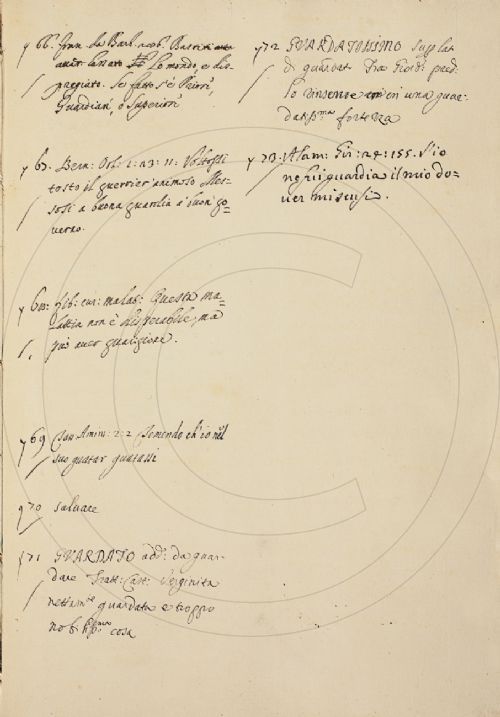 y 66. Fran. da Barb.
aver lassato il mondo, e dis=
pregiato. Se fatto s'è Priori,
Guardian, o superiori
y 67. Bern: Orl: 1: 23: 11: Voltossi
tosto il guerrier animoso Mes=
sosi a buona guardia è buon go=
verno.
y 68: lib: cur: malat: Questa ma=
lattia non è disperabile, ma
può aver guarigione.
y 69 Can. Amm: 2: 2 Temendo ch'io nel
suo guatar guatassi
y 70 salvare
y 71 GVARDATO add: da guar=
dare Tratt: Cast: Verginita
guardata e troppo
cosa
y 72 GVARDATISSIMO Superlat
di guardat: Fra Giord: pred:
lo rinserrò in una guar=
datissma fortezza
y 73. Alam: Gir: 24: 155. S'io
ne fui guardia il mio do=
ver mi scusi.